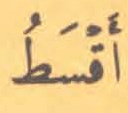 أَقْسَطُ